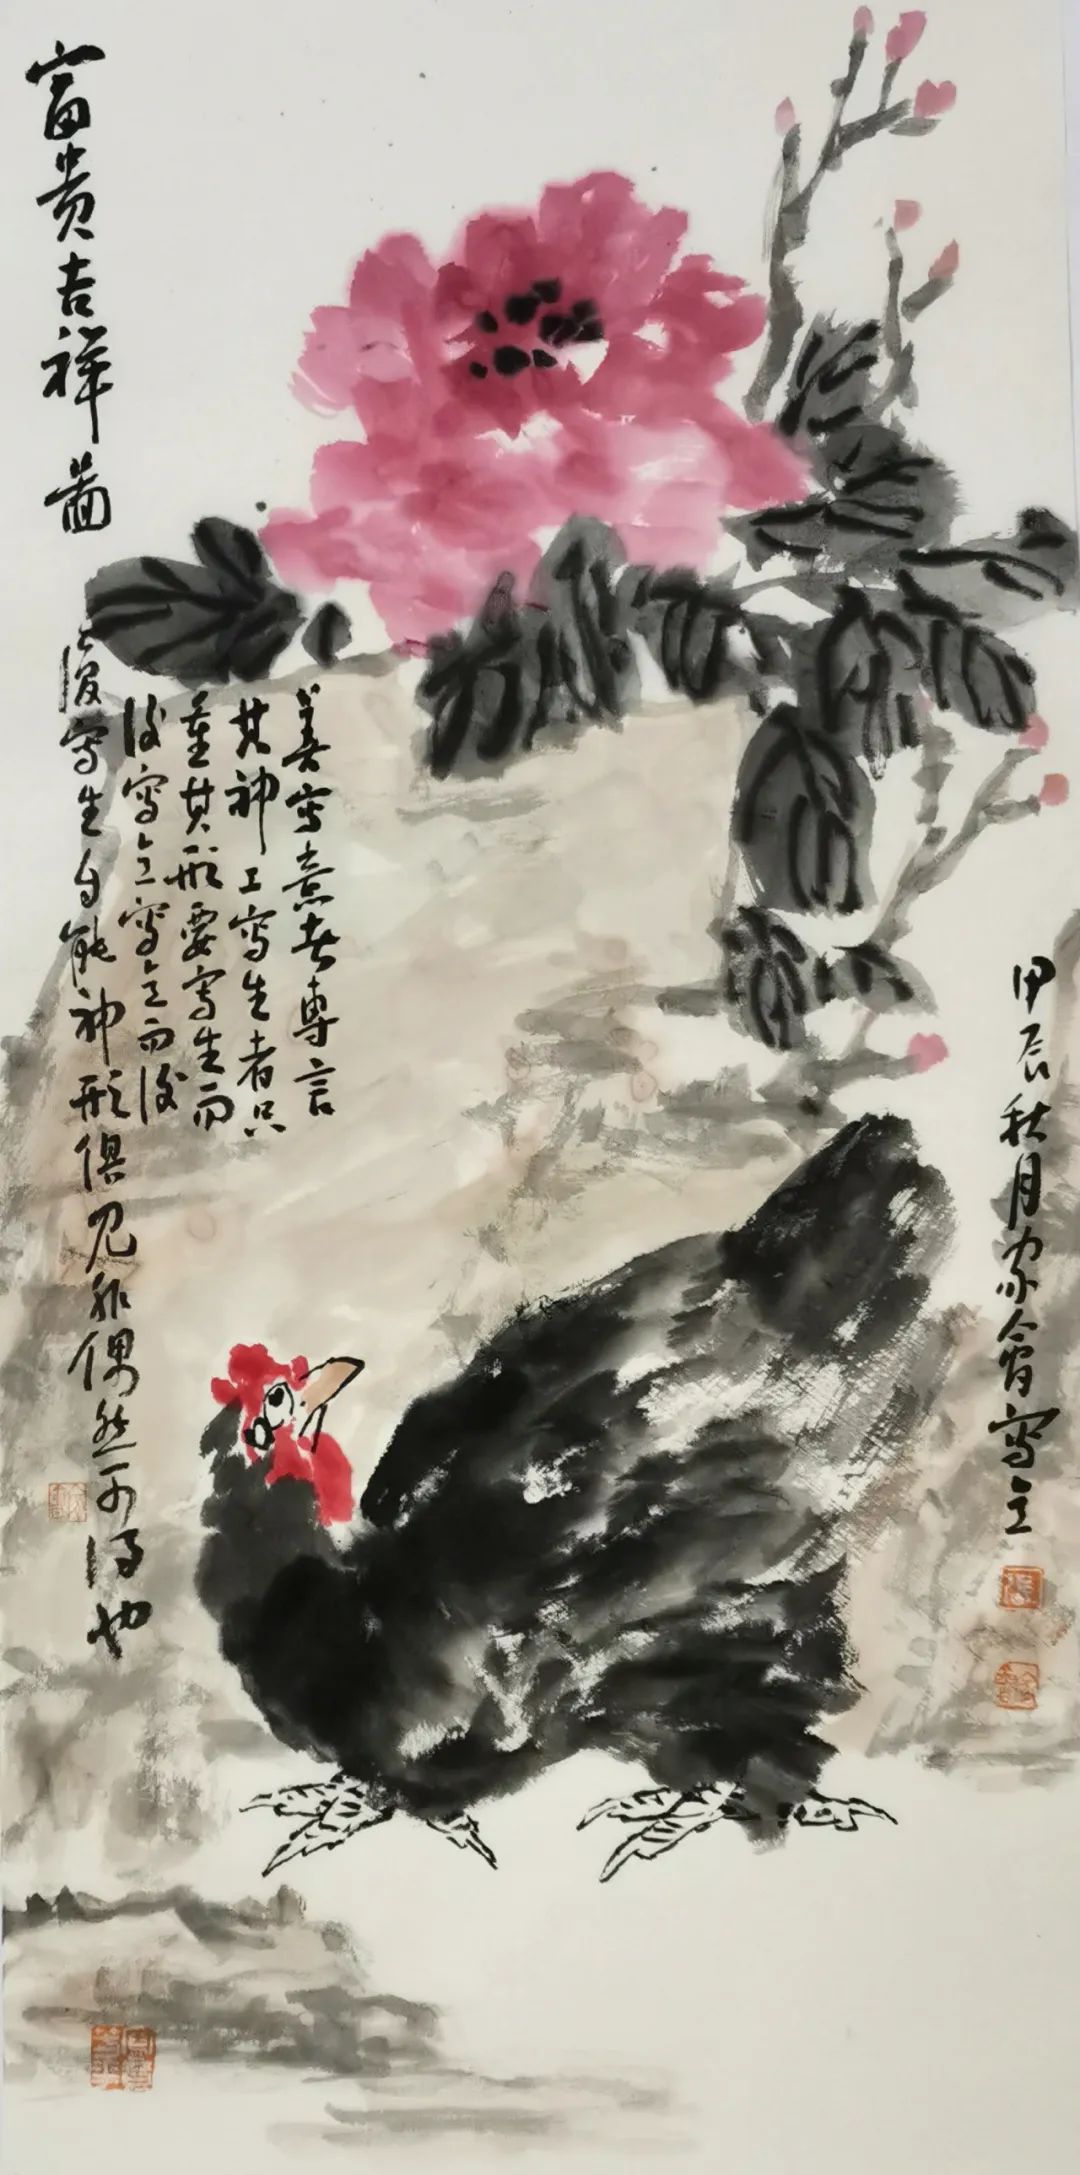 富贵吉祥图
善写意者专言
其神工写生者只
重其形要写生而
後写意写意而後
復写生自能神形俱见非偶然可得也
甲辰秋月家會写意